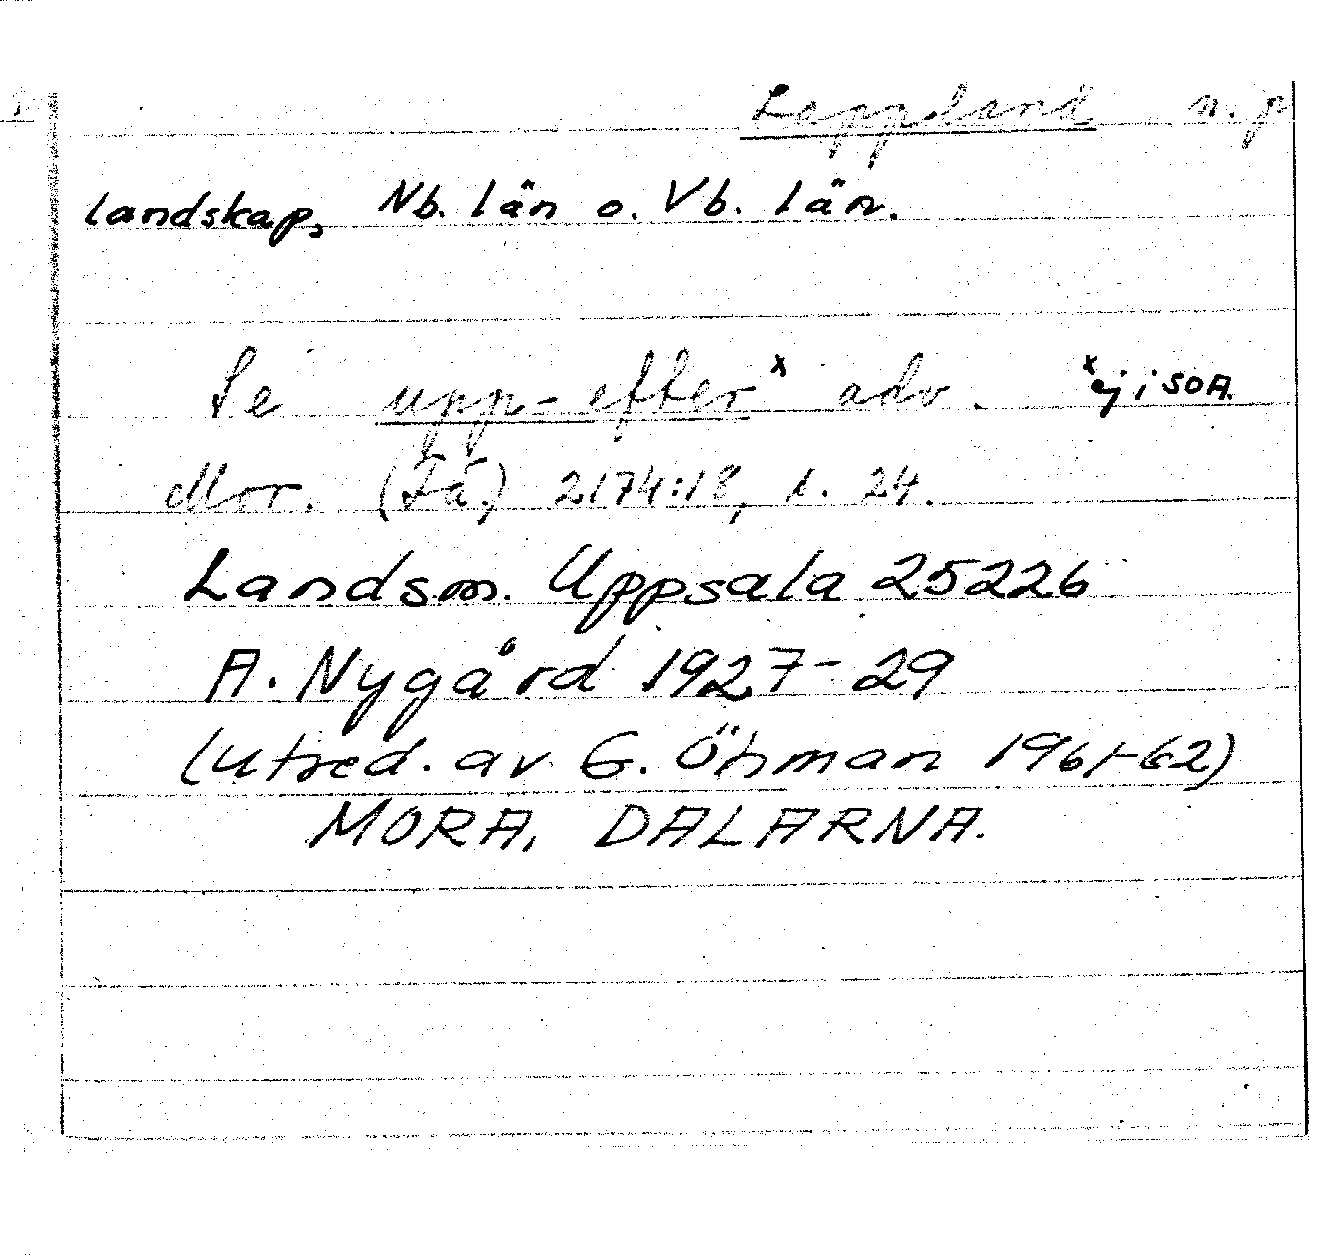 Lappland n. p
landskap, Nb. län o. Vb. län.
Se upp-efter x adv. x ej i SOA.
Mor. (Få) 2174:18, s. 24.
Landsm. Uppsala 25226
A. Nygård 1927-29
(utred. av G. Öhman 1961-62)
MORA, DALARNA.